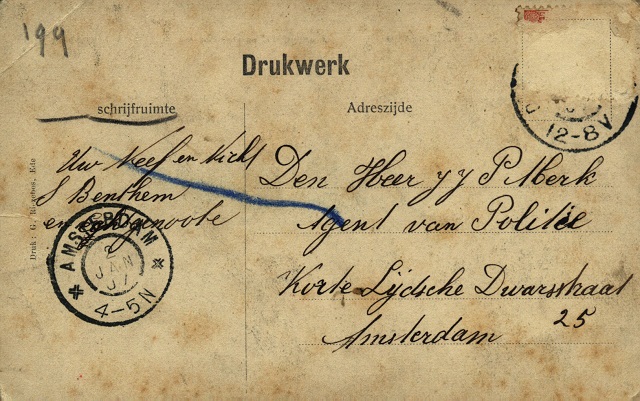 '99
Drukwerk
schrijfruimte
Adreszijde
Uw Neef en Nicht
S Benthem
en Echtgenoote
Den Heer y y P Merk
Agent van Politie
Korte Lijdsche Dwarsstraat
25
Amsterdam
AMSTERDAM
2
JAN
07
4-5N
12-8V
Druk: G. Ede